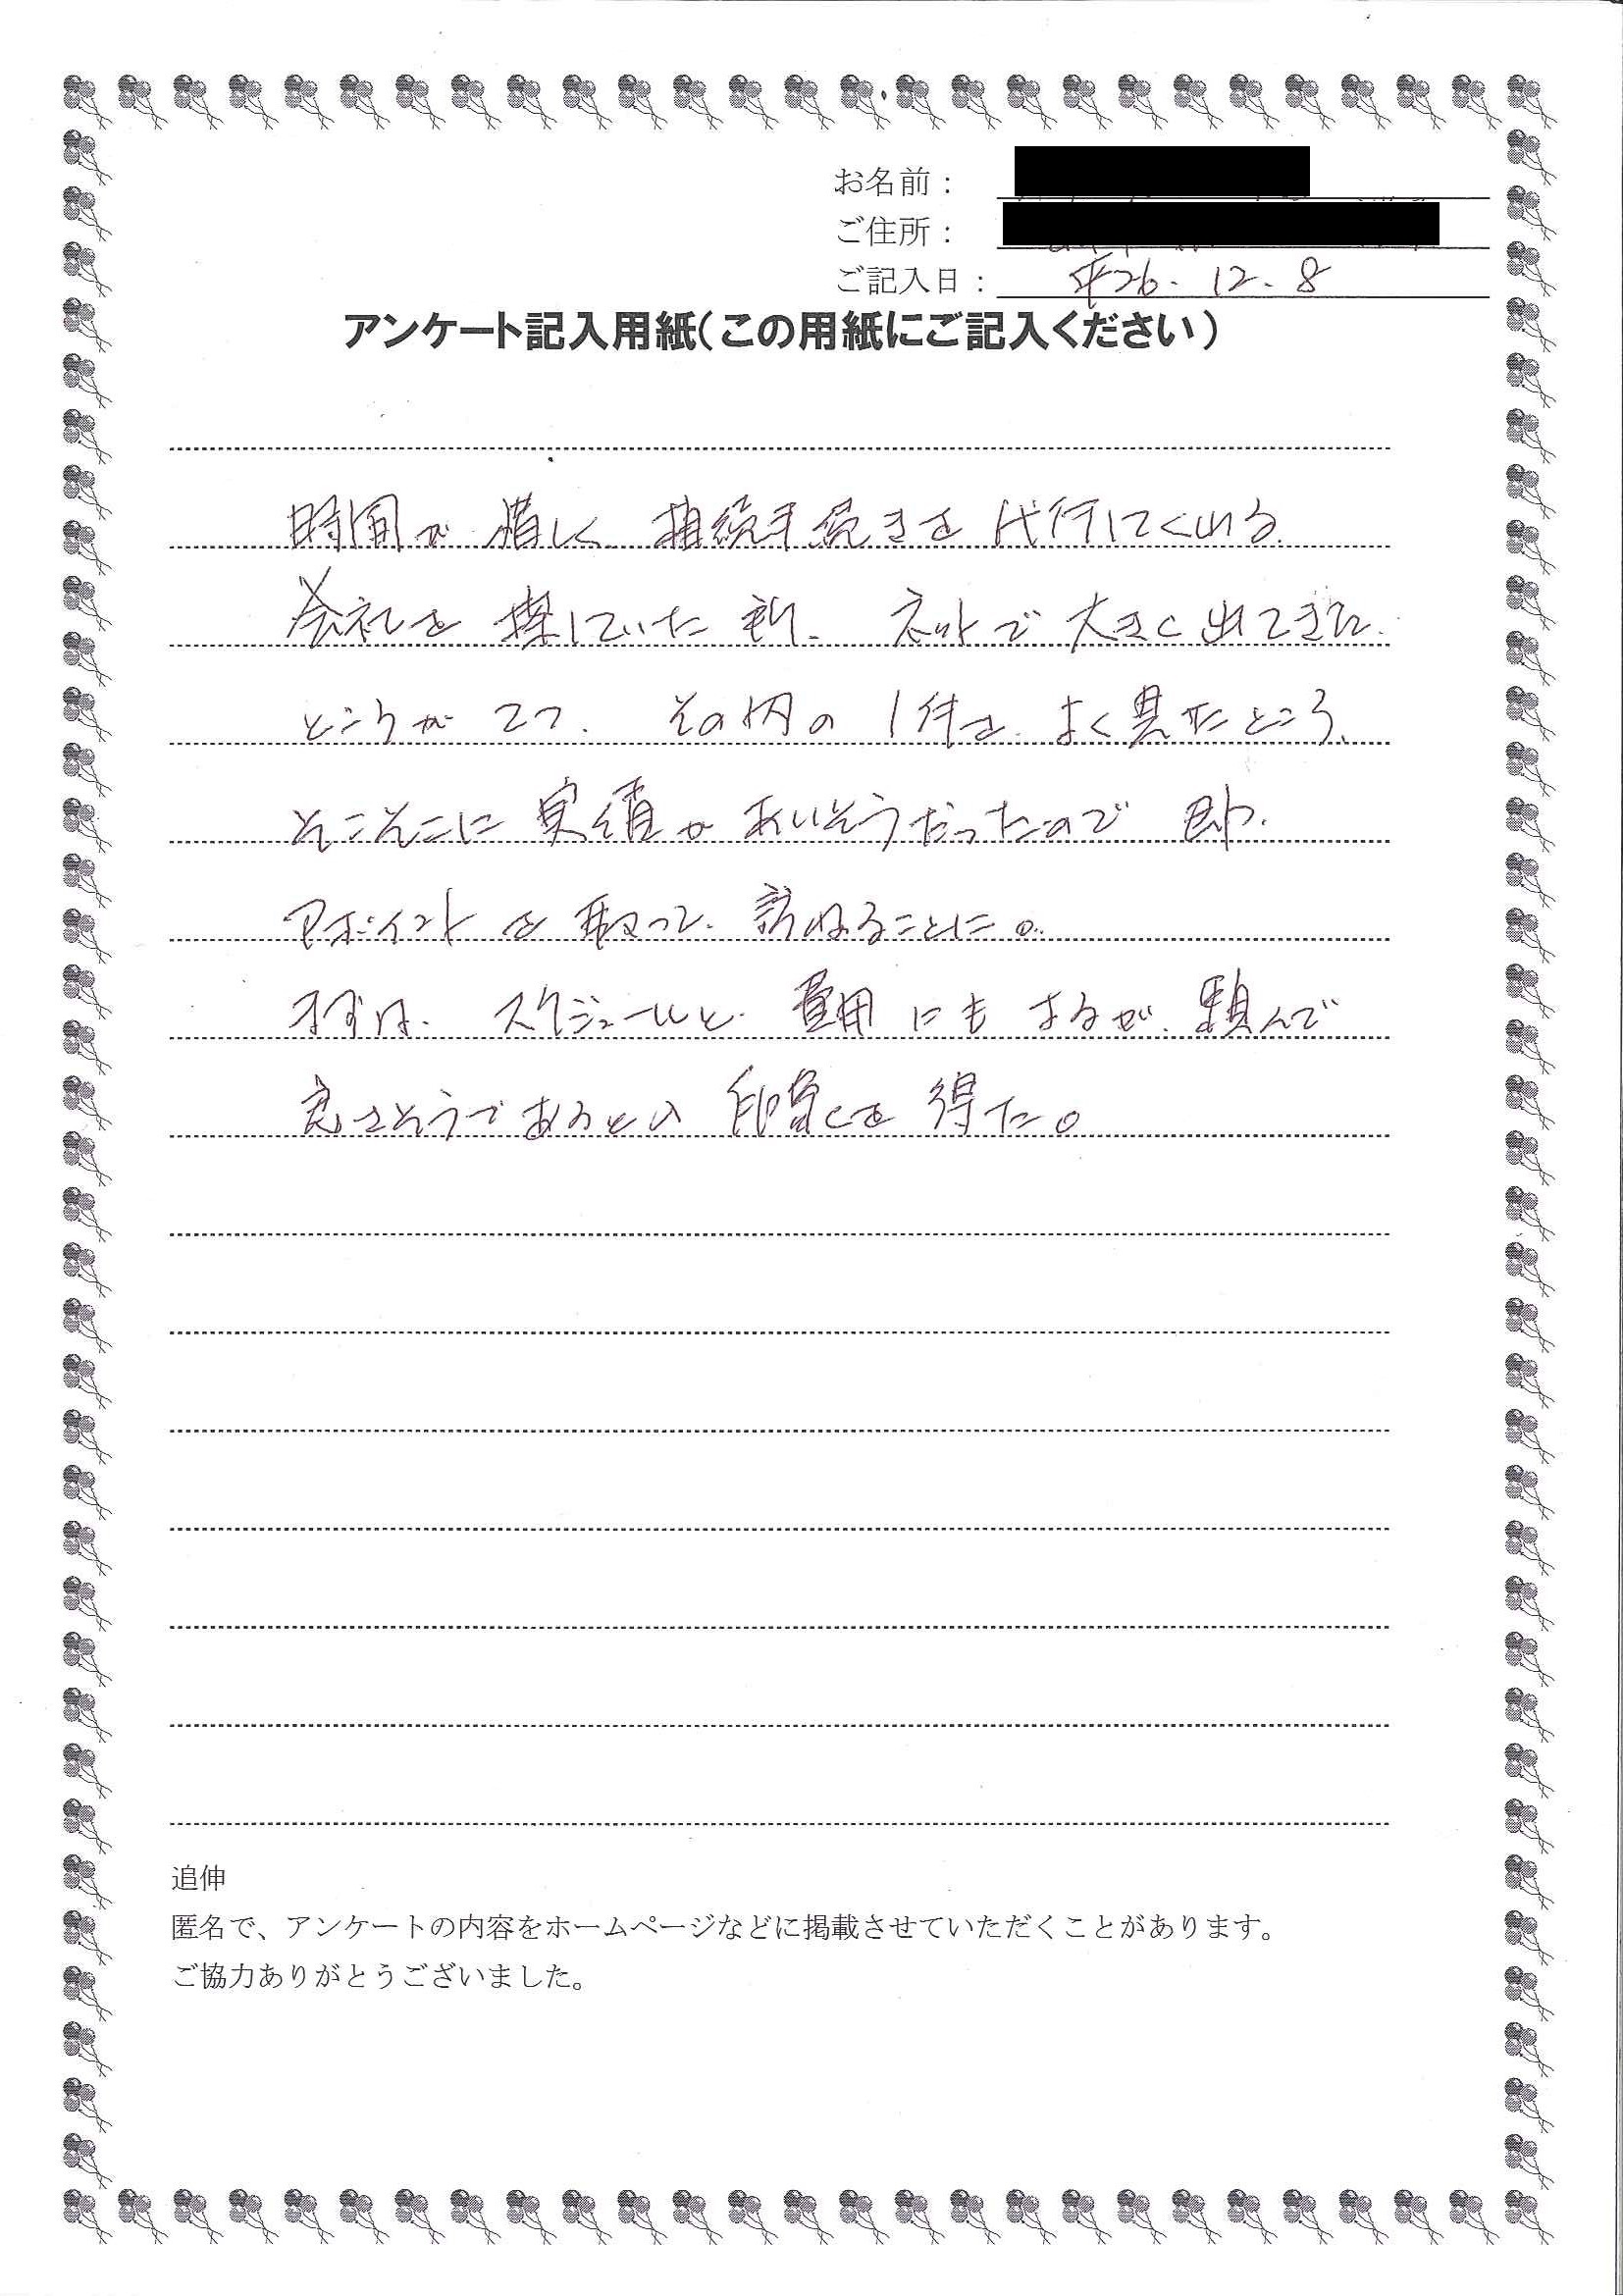 お名前：
ご住所：
ご記入日： 平26.12.8
アンケート記入用紙（この用紙にご記入ください）
時間が惜しく 相続手続きを 代行してくれる
会社を 探していた 折、 ネットで 大きく出てきた
ところが 2つ、 その内の 1件を よく見たところ、
そこそこに 実績が ありそうだったので 即
アポイントを 取って、訪ねることに。
まずは、 スケジュールと 費用 にも よるが、頼んで
良さそうであるとの 印象を 得た。
追伸
匿名で、アンケートの内容をホームページなどに掲載させていただくことがあります。
ご協力ありがとうございました。